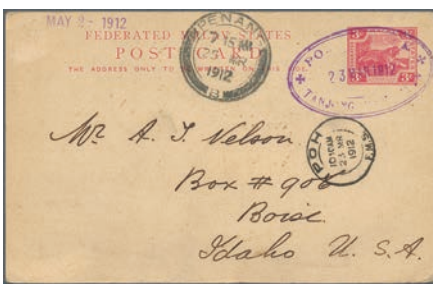 MAY 2- 1912
FEDERATED MALAY STATES
POST CARD
THE ADDRESS ONLY TO BE WRITTEN ON THIS SIDE.
PENANG
7 15 AM
1912
B
23 MAR 1912
TANJONG
IPOH
10 10 AM
23 MR
1912
F.M.S
Mr A. J. Nelson
Box # 906
Boise
Idaho U. S. A.